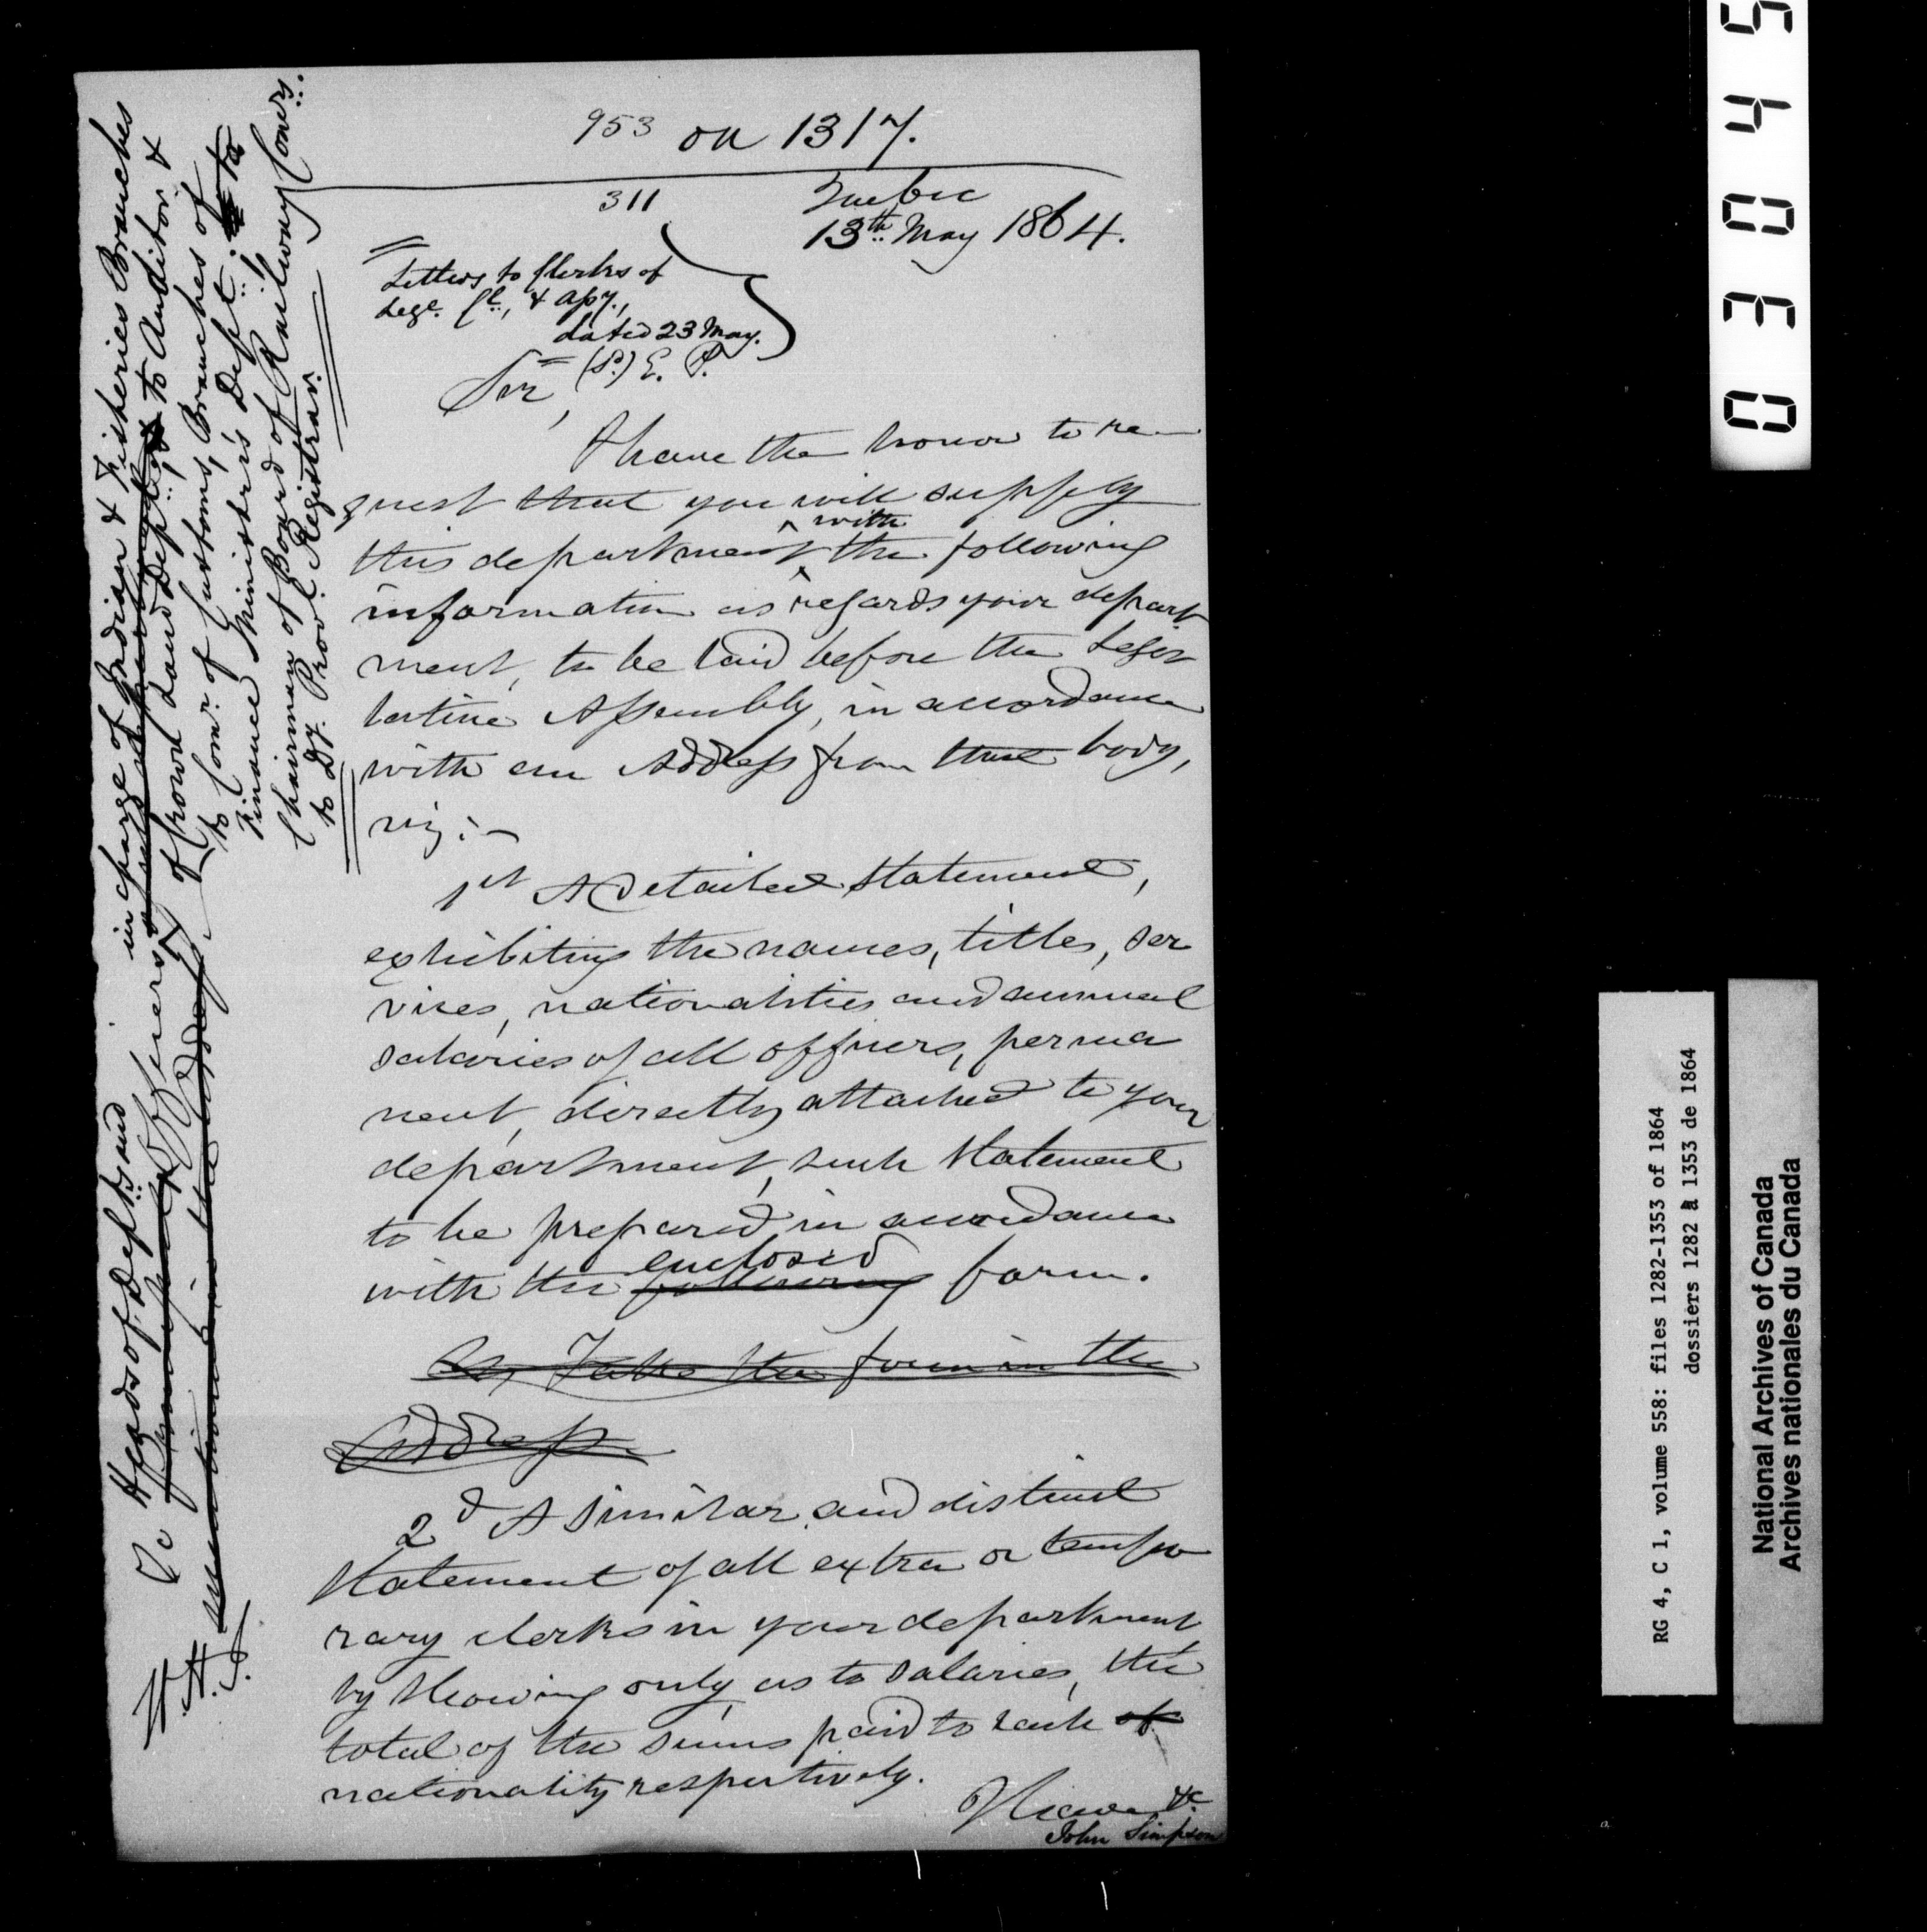 953 on 1317.
311
Quebec
13th May 1864.
Letters to Clerks of
Lege. Cl., & Asy.,
dated 23 May.
(P.) E. P.
Sir,
I have the honor to re-
quest that you will supply
this department with the following
information as regards your depart
ment, to be laid before the Legis
lative Assembly, in accordance
with an Address from that body,
viz:-
1st A Detailed Statement,
exhibiting the names, titles, ser
vices, nationalities and annual
salaries of all officers, perma
nent, directly attached to your
department, such Statement
to be prepared in accordance
with the following enclosed form.
Take the form in the
Address
2d A similar and distinct
Statement of all extra or tempo
rary clerks in your department
by showing only, as to salaries, the
total of the sums paid to each of
nationality respectively.
I have &c
John Simpson
To Heads of Depts and
Officers
in charge of Indian & Fisheries Branches
of Crown Land Dept., to Auditor &
to Comr. of Customs, Branches of
Finance Minister's Dept.: to
Chairman of Board of Railway Comrs.
to Dy. Provl. Registrar.
mentioned in the Address
H.H.S.
03045
RG 4, C 1, volume 558: files 1282-1353 of 1864
dossiers 1282 à 1353 de 1864
National Archives of Canada
Archives nationales du Canada